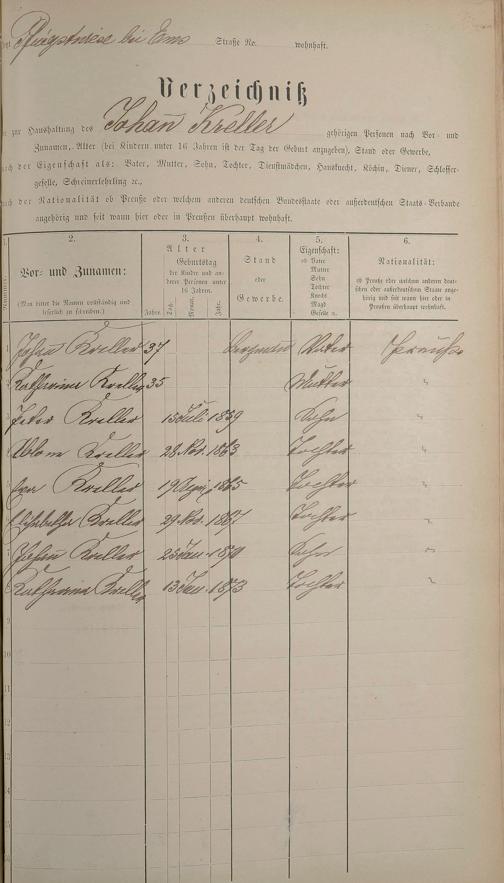 bei Ems Straße No. wohnhaft.
Verzeichniß
zur Haushaltung des Johann Kreller gehörigen Personen nach Vor- und
Zunamen, Alter (bei Kindern unter 16 Jahren ist der Tag der Geburt anzugeben), Stand oder Gewerbe,
nach der Eigenschaft als: Vater, Mutter, Sohn, Tochter, Dienstmädchen, Hausknecht, Köchin, Diener, Schlosser-
geselle, Schreinerlehrling ꝛc.,
nach der Nationalität ob Preuße oder welchem anderen deutschen Bundesstaate oder außerdeutschen Staats-Verbande
angehörig und seit wann hier oder in Preußen überhaupt wohnhaft.
1.
Nummer.
2.
Vor- und Zunamen:
(Man bittet die Namen vollständig und
leserlich zu schreiben.)
3.
Alter
Jahre.
Geburtstag
der Kinder und an-
derer Personen unter
16 Jahren.
Tag. Monat. Jahr.
4.
Stand
oder
Gewerbe.
5.
Eigenschaft:
ob Vater
Mutter
Sohn
Tochter
Knecht
Magd
Geselle ꝛc.
6.
Nationalität:
ob Preuße oder welchem anderen deut-
schen oder außerdeutschen Staate ange-
hörig und seit wann hier oder in
Preußen überhaupt wohnhaft.
Johann Kreller 37 Bergmann Vater Preuße
Katharina Kreller 35 Mutter "
Peter Kreller 15 Juli 1859 Sohn "
Kreller 28 Nov. 1863 Tochter "
Eva Kreller 19 1865 Tochter "
Elisabetha Kreller 29 Nov. 1867 Tochter "
Johann Kreller 25 Jan. 1870 Sohn "
Katharina Kreller 13 Jan. 1873 Tochter "
9
10
11
12
13
14
15
16